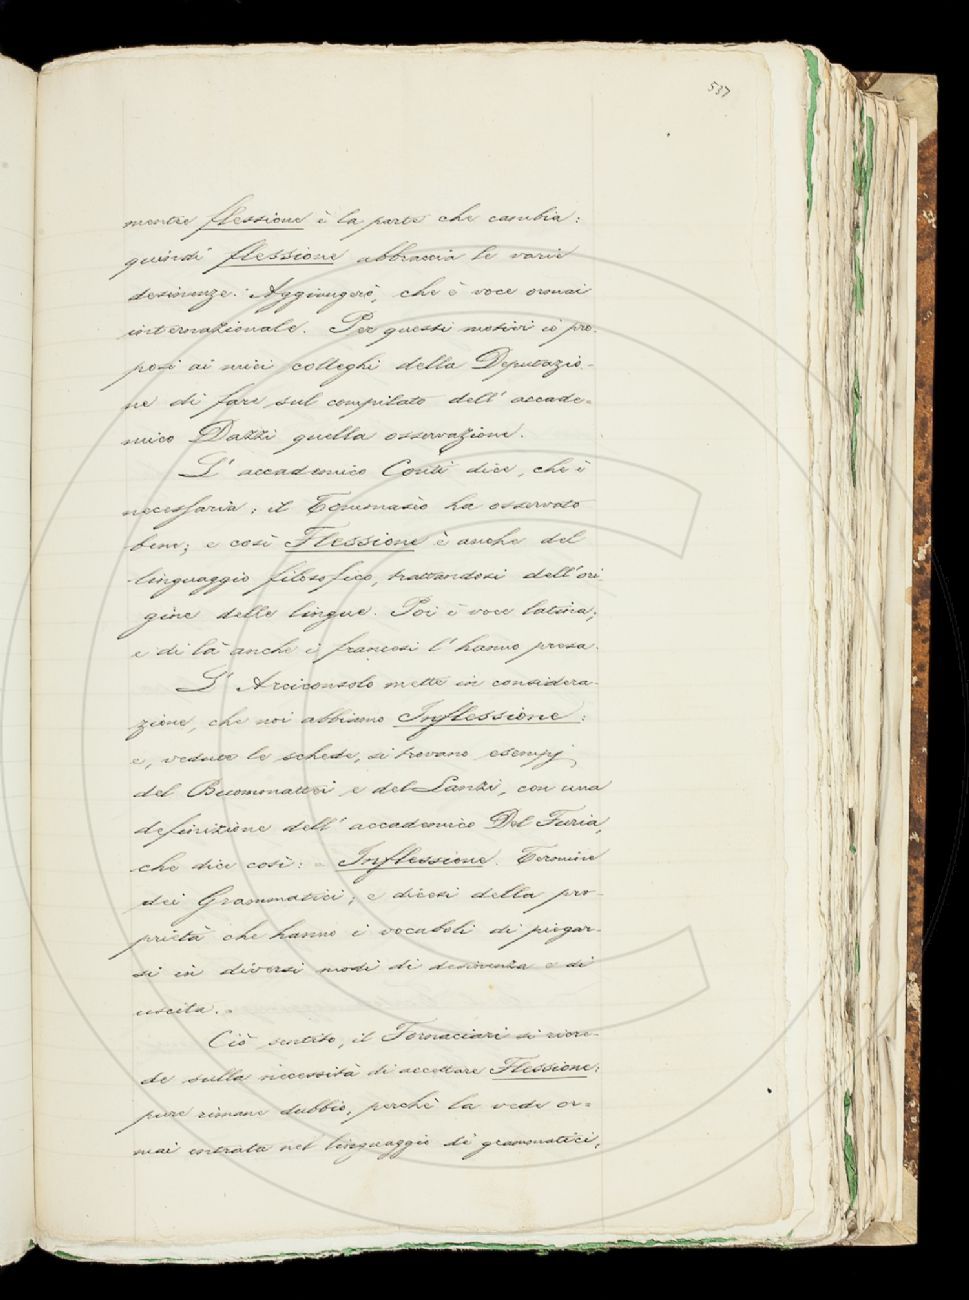 537
mentre flessione è la parte che cambia:
quindi flessione abbraccia le varie
desinenze. Aggiungerò, che è voce ormai
internazionale. Per questi motivi io pro-
posi ai miei colleghi della Deputazio-
ne di fare sul compilato dell' accade-
mico Dazzi quella osservazione.
L' accademico Conti dice, che è
necessaria; il Tommasèo ha osservato
bene; e così Flessione è anche del
linguaggio filosofico, trattandosi dell'ori
gine delle lingue. Poi è voce latina;
e di là anche i francesi l' hanno presa.
L' Arciconsolo mette in considera-
zione, che noi abbiamo Inflessione:
e, vedute le schede, si trovano esempj
del Buommattei e del Lanzi, con una
definizione dell' accademico Del Furia,
che dice così: = Inflessione. Termine
dei Grammatici; e dicesi della pro-
prietà che hanno i vocaboli di piegar-
si in diversi modi di desinenza e di
uscita. =
Ciò sentito, il Fornaciari si ricre-
de sulla necessità di accettare Flessione:
pure rimane dubbio, perchè la vede or-
mai entrata nel linguaggio di grammatici,